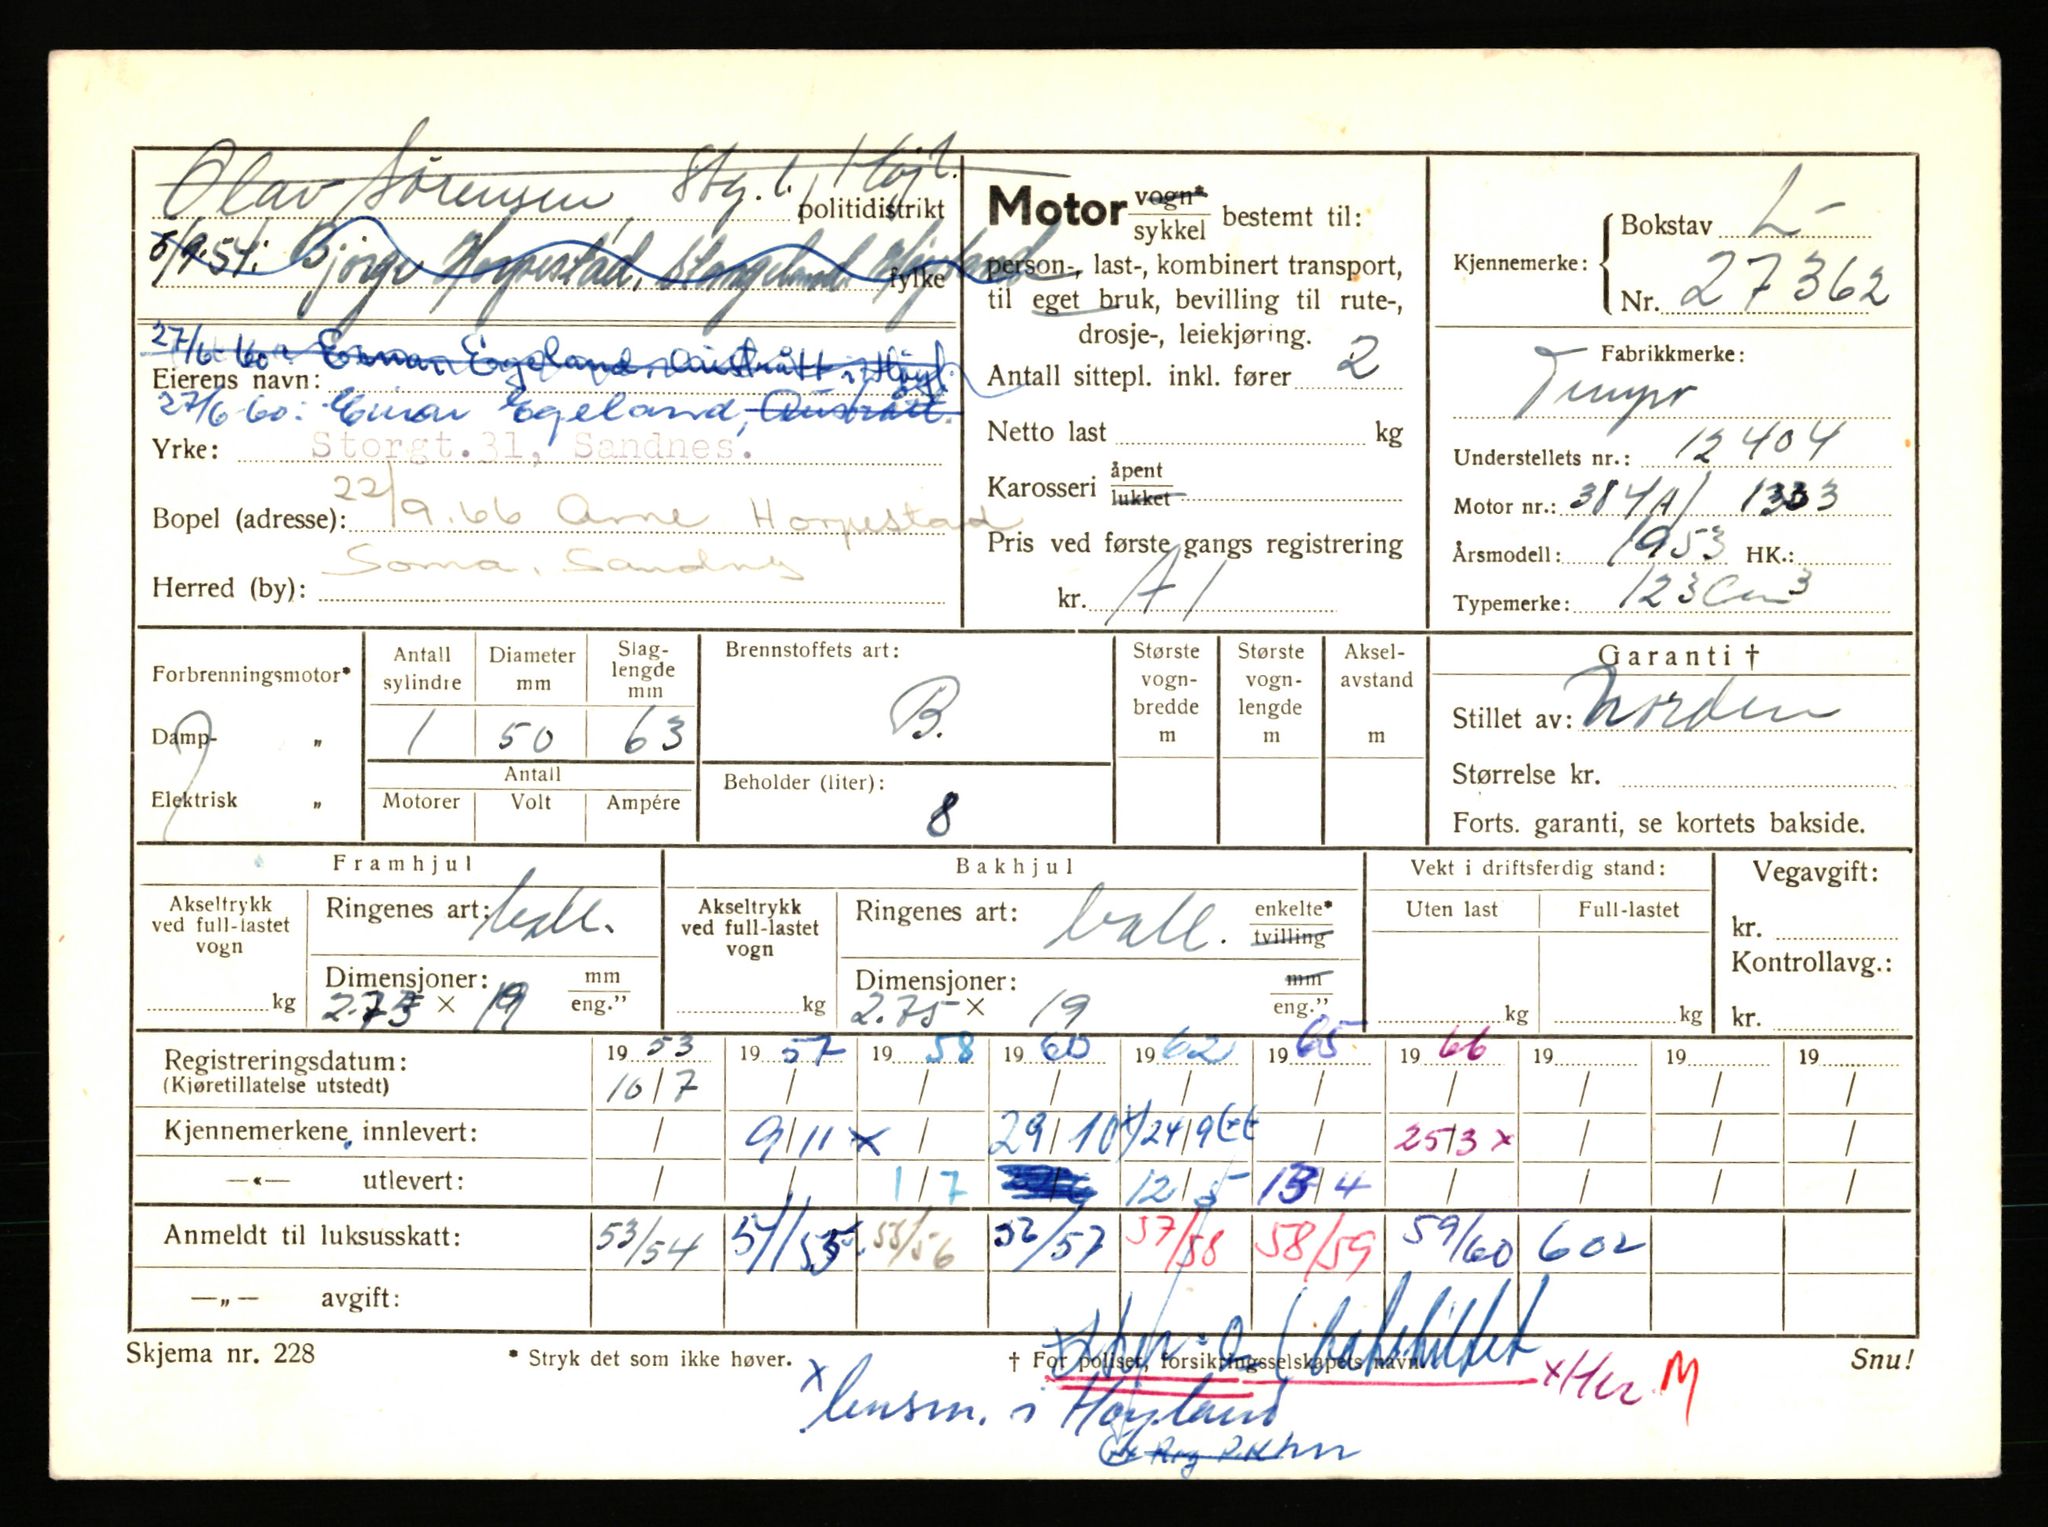 Olav Sörensen, Stg. l. Højl.
politidistrikt
5/9.54: Bjørge Horpestad, Stangeland Højland
fylke
27/6-60: Einar Egeland, Austrått i Høyl.
Eierens navn:
27/6-60: Einar Egeland, Austrått.
Yrke: Storgt.31, Sandnes.
Bopel (adresse): 22/9.66 Arne Horpestad
Soma, Sandnes
Herred (by):
Motor vogn* / sykkel bestemt til:
person-, last-, kombinert transport,
til eget bruk, bevilling til rute-,
drosje-, leiekjøring.
Antall sittepl. inkl. fører 2
Netto last kg
Karosseri åpent / lukket
Pris ved første gangs registrering
kr. A1
Kjennemerke: Bokstav L-
Nr. 27362
Fabrikkmerke:
Tempo
Understellets nr.: 12404
Motor nr.: 384A/ 1333
Årsmodell: 1953 HK.:
Typemerke: 123 Cm3
Forbrenningsmotor*
Damp- „
Elektrisk „
Antall sylindre Diameter mm Slaglengde mm
1 50 63
Antall
Motorer Volt Ampére
Brennstoffets art:
B.
Beholder (liter):
8
Største vognbredde m
Største vognlengde m
Akselavstand m
Garanti †
Stillet av: Norden
Størrelse kr.
Forts. garanti, se kortets bakside.
Framhjul
Akseltrykk ved full-lastet vogn kg
Ringenes art: ball.
Dimensjoner: mm / eng."
2.75 × 19
Bakhjul
Akseltrykk ved full-lastet vogn kg
Ringenes art: ball. enkelte* / tvilling
Dimensjoner: mm / eng."
2.75 × 19
Vekt i driftsferdig stand:
Uten last Full-lastet
kg kg
Vegavgift:
kr.
Kontrollavg.:
kr.
Registreringsdatum: 1953 1957 1958 1960 1962 1965 1966 19 19 19
(Kjøretillatelse utstedt) 10/7 / / / / / / / / /
Kjennemerkene innlevert: / 9/11 x / 29/10 24/9 / 25/3 x / / /
—«— utlevert: / / 1/7 12/5 13/4 / / / /
Anmeldt til luksusskatt: 53/54 54/55 55/56 56/57 57/58 58/59 59/60 602
—„— avgift:
Skjema nr. 228
* Stryk det som ikke høver.
† For poliser, forsikringsselskapets navn.
Snu!
x Her M
x lensm. i Høyland